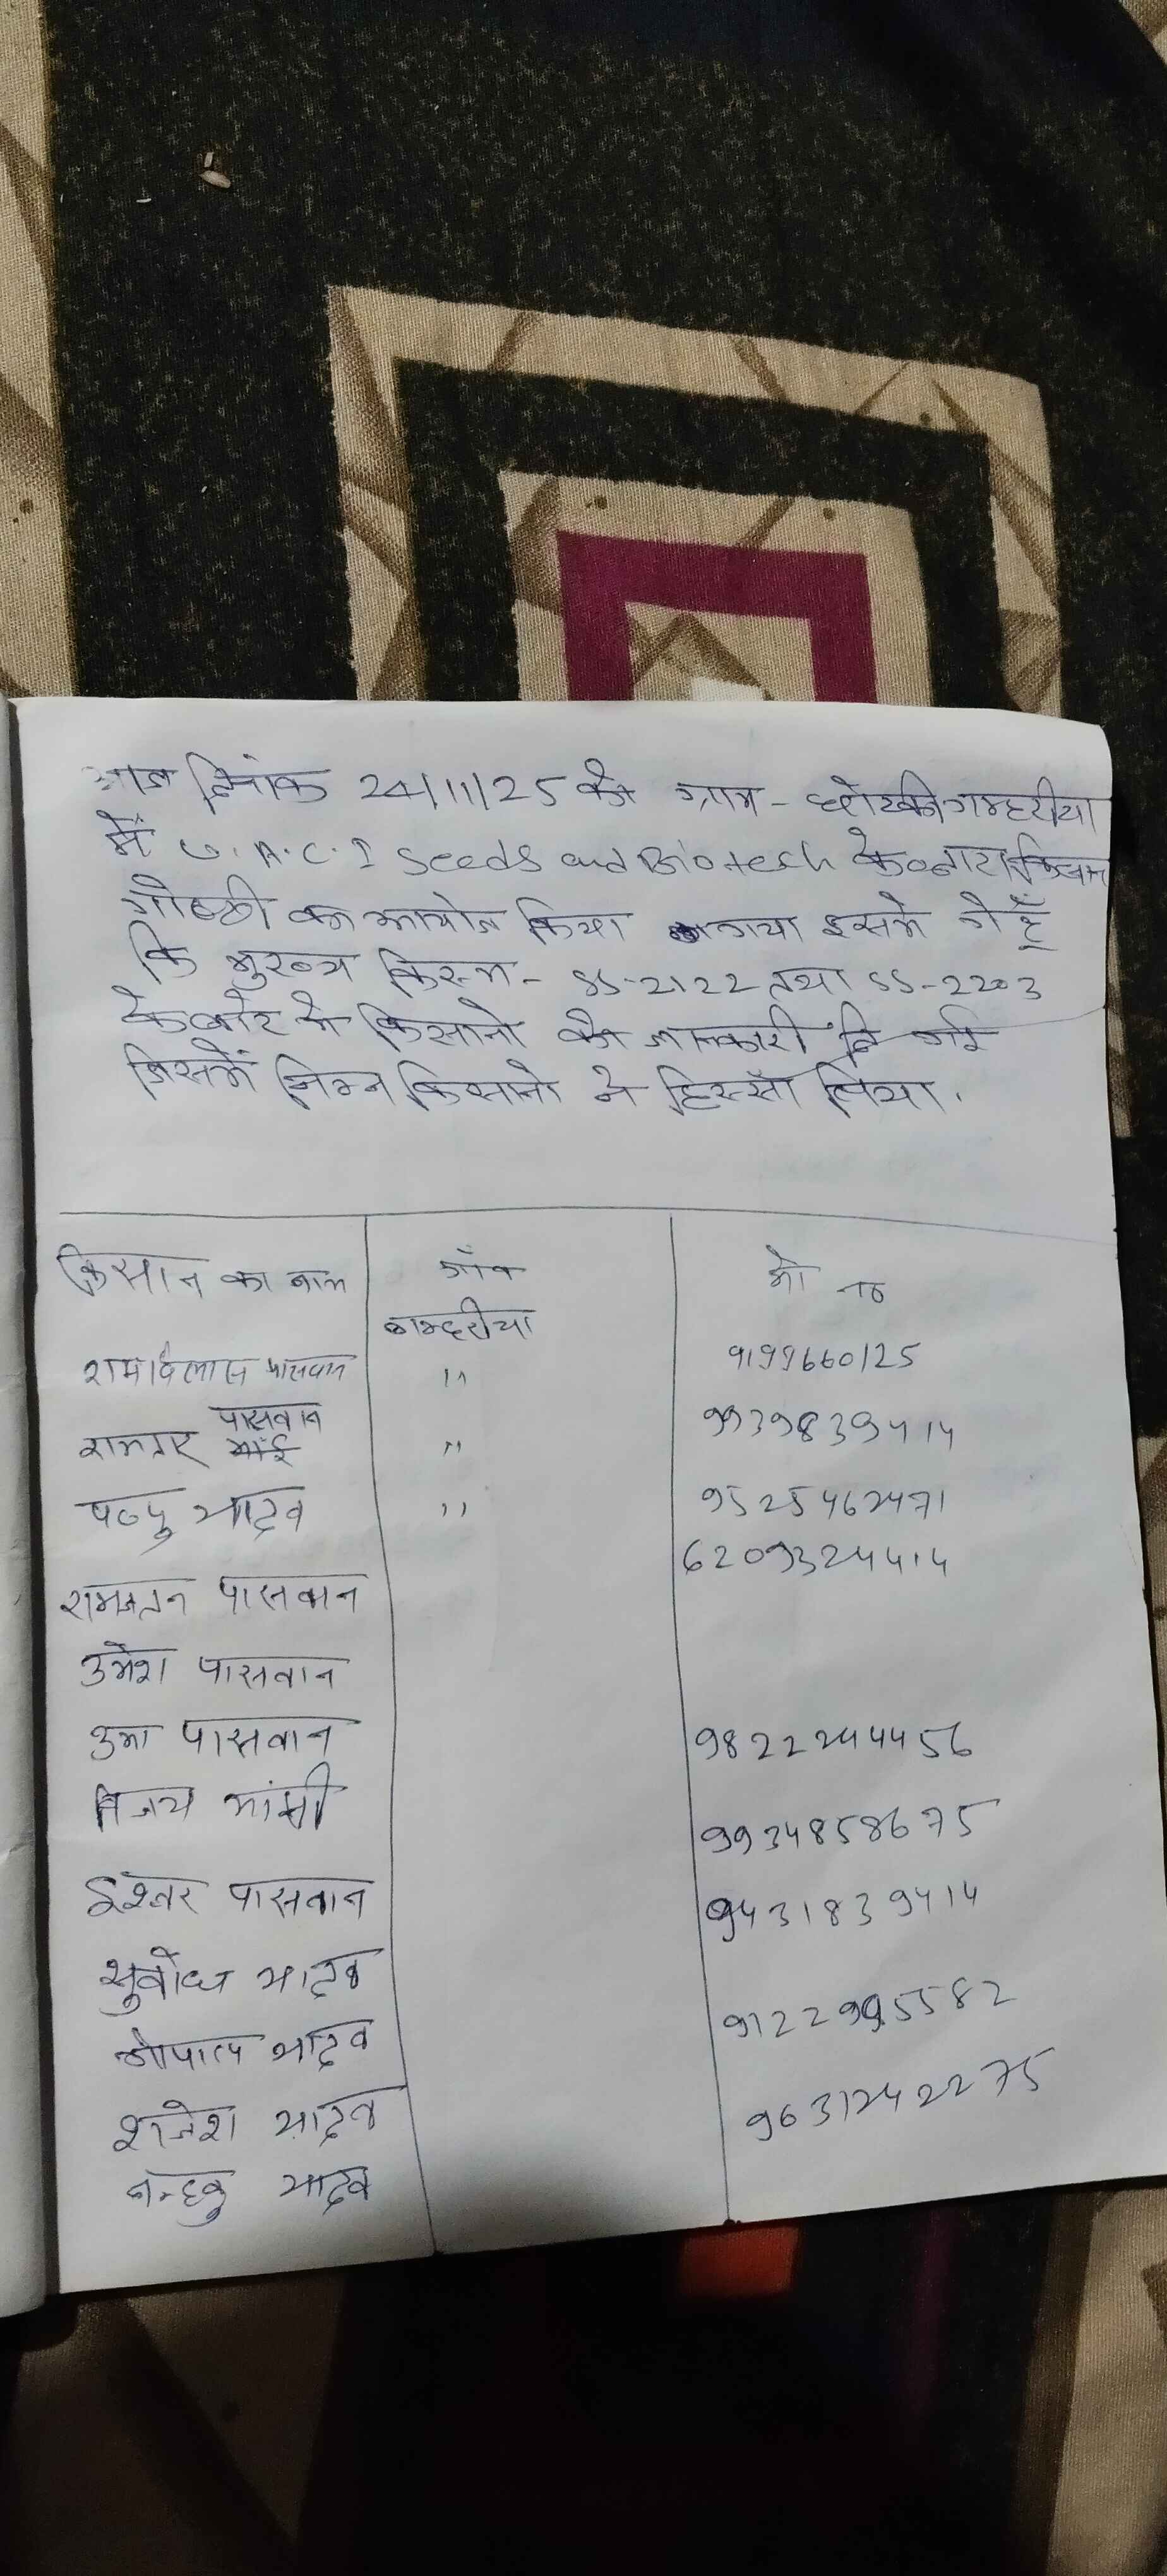 आज दिनांक 24/11/25 को ग्राम - छोटकी गम्हरीया
में U.A.C.I Seeds and Biotech के द्वारा किसान
गोष्ठी का आयोज किया गया इसमे गेहूँ
कि मुख्य किस्म - SS-2122 तथा SS-2203
के बारे मे किसानो को जानकारी दि गई
जिसमें निम्न किसानो ने हिस्सा लिया.
किसान का नाम गाँव मो न०
गम्हरीया
रामविलास पासवान " 9199660125
पासवान
रामनार " 9939839414
पप्पु यादव " 9525462471
6209324414
रामजतन पासवान
उमेश पासवान
उमा पासवान 9822244456
विजय मांझी
9934858675
इश्वर पासवान 9431839414
सुबोध यादव
गोपाल यादव 9122995582
राजेश यादव 9631242275
नन्हकु यादव